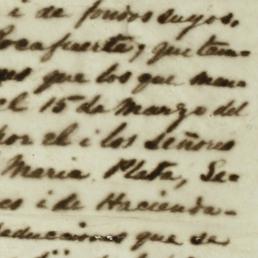 i de fondos suyos,
Rocafuerte, que tam-
que los que man-
el 15 de Marzo del
por el i los Señores
Maria Plata, Se-
i de Hacienda-
deducciones que se